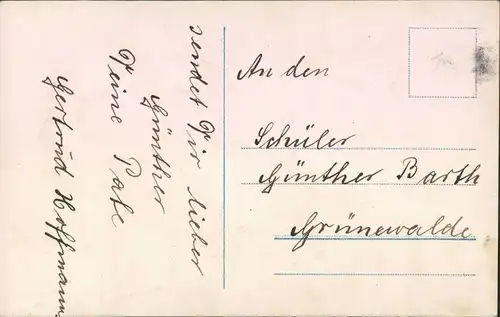 sendet Dir lieber
Günther
Deine Pate
Gertrud Hoffmann.
An den
Schüler
Günther Barth
Grünewalde